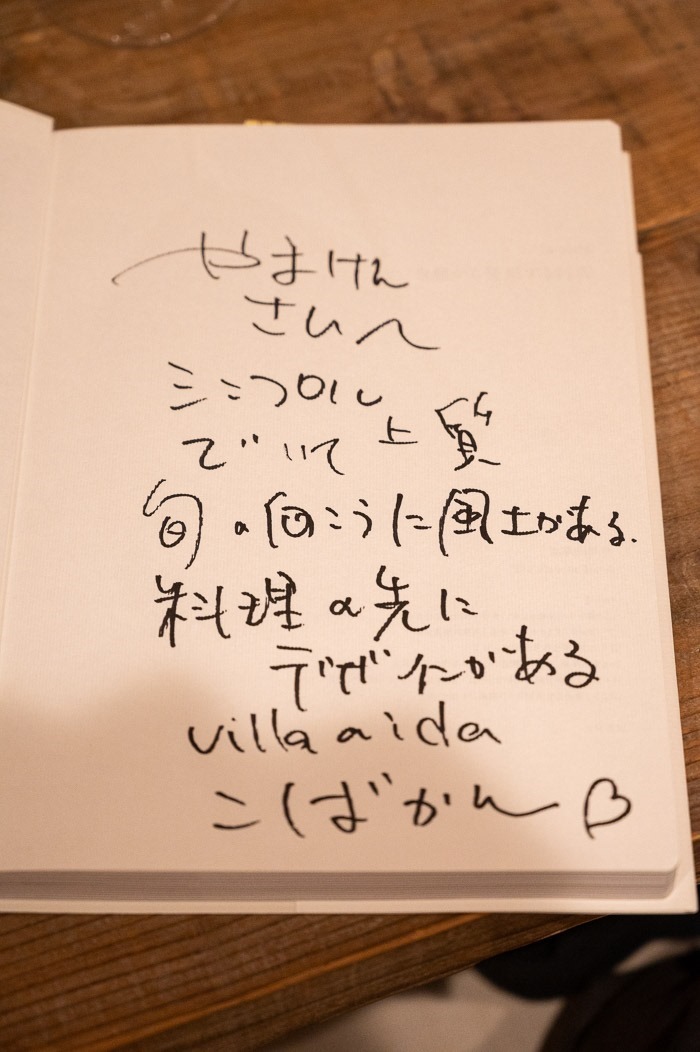 やまけん
さんへ
シンプル
でいて上質
旬の向こうに風土がある.
料理の先に
デザインがある
villa aida
こばかん♡